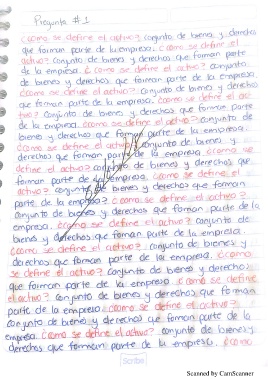 Pregunta #1
¿Como se define el activo? conjunto de bienes y derechos
que forman parte de la empresa. ¿Como se define el
activo? conjunto de bienes y derechos que forman parte
de la empresa. ¿Como se define el activo? conjunto
de bienes y derechos que forman parte de la empresa.
¿Como se define el activo? conjunto de bienes y derechos
que forman parte de la empresa. ¿Como se define el ac-
tivo? conjunto de bienes y derechos que forman parte
de la empresa. ¿Como se define el activo? conjunto de
bienes y derechos que forman parte de la empresa.
¿Como se define el activo? conjunto de bienes y
derechos que forman parte de la empresa ¿Como se
define el activo? conjunto de bienes y derechos que
forman parte de la empresa. ¿Como se define el
activo? conjunto de bienes y derechos que forman
parte de la empresa? ¿Como se define el activo?
conjunto de bienes y derechos que forman parte de la
empresa. ¿Como se define el activo? conjunto de
bienes y derechos que forman parte de la empresa.
¿Como se define el activo? conjunto de bienes y
derechos que forman parte de la empresa. ¿Como
se define el activo? conjunto de bienes y derechos
que forman parte de la empresa. ¿Como se define
el activo? conjunto de bienes y derechos que forman
parte de la empresa ¿Como se define el activo?
conjunto de bienes y derechos que forman parte de la
empresa. ¿Como se define el activo? conjunto de bienes y
derechos que forman parte de la empresa. ¿Como
Scribe
Scanned by CamScanner